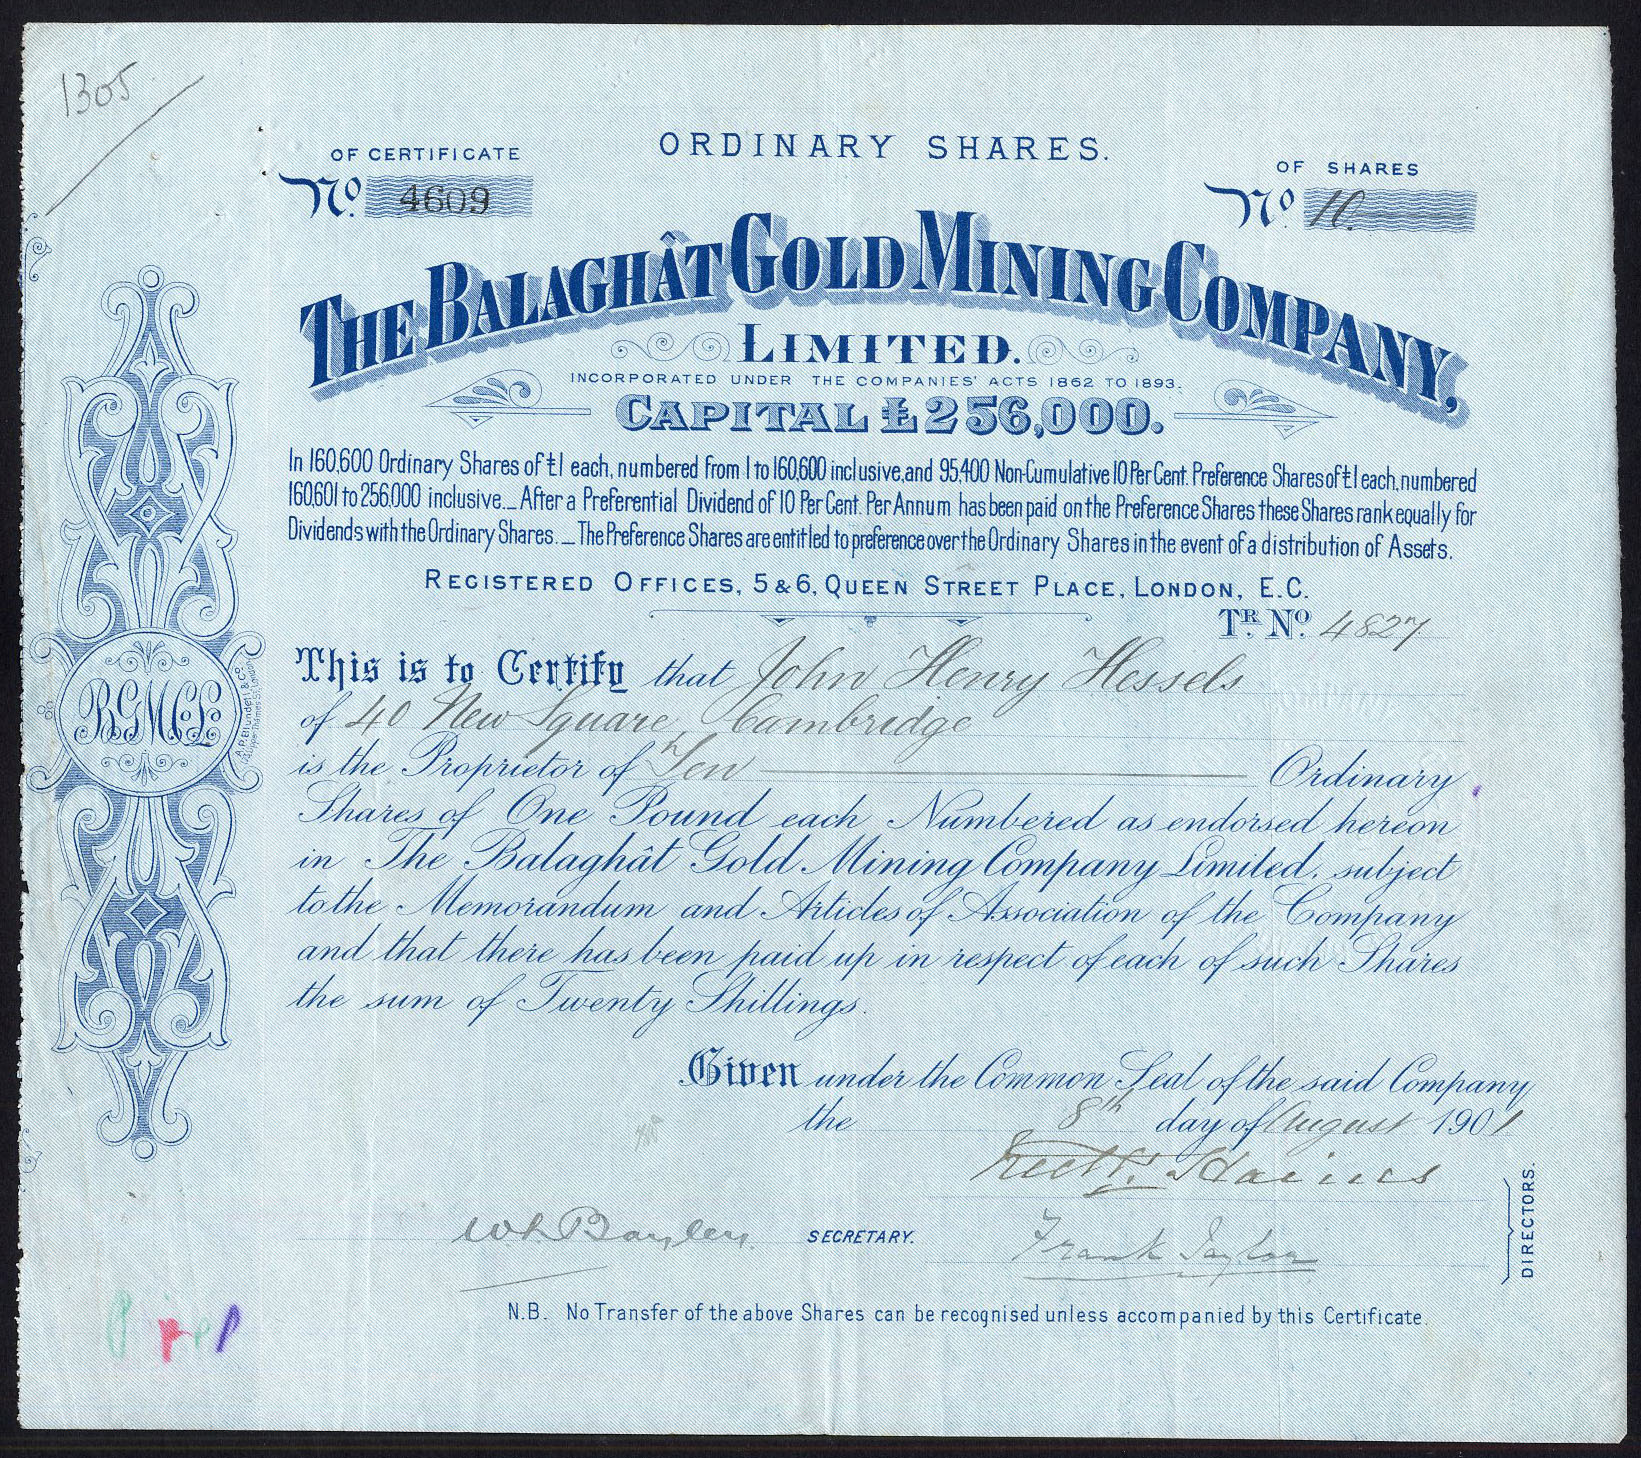 1305
ORDINARY SHARES.
OF CERTIFICATE
No. 4609
OF SHARES
No. 10
THE BALAGHÂT GOLD MINING COMPANY,
LIMITED.
INCORPORATED UNDER THE COMPANIES' ACTS 1862 TO 1893.
CAPITAL £256,000.
In 160,600 Ordinary Shares of £1 each, numbered from 1 to 160,600 inclusive, and 95,400 Non-Cumulative 10 Per Cent. Preference Shares of £1 each, numbered
160,601 to 256,000 inclusive._ After a Preferential Dividend of 10 Per Cent. Per Annum has been paid on the Preference Shares these Shares rank equally for
Dividends with the Ordinary Shares._ The Preference Shares are entitled to preference over the Ordinary Shares in the event of a distribution of Assets.
REGISTERED OFFICES, 5 & 6, QUEEN STREET PLACE, LONDON, E.C.
TR. No. 4827
This is to Certify that John Henry Hessels
of 40 New Square, Cambridge
is the Proprietor of Ten Ordinary
Shares of One Pound each Numbered as endorsed hereon
in The Balaghât Gold Mining Company Limited, subject
to the Memorandum and Articles of Association of the Company
and that there has been paid up in respect of each of such Shares
the sum of Twenty Shillings.
Given under the Common Seal of the said Company
the 8th day of August 1901
Haines
SECRETARY.
Frank Taylor
DIRECTORS.
N.B. No Transfer of the above Shares can be recognised unless accompanied by this Certificate.
BGMCoL
A.P. Blundell & Co.